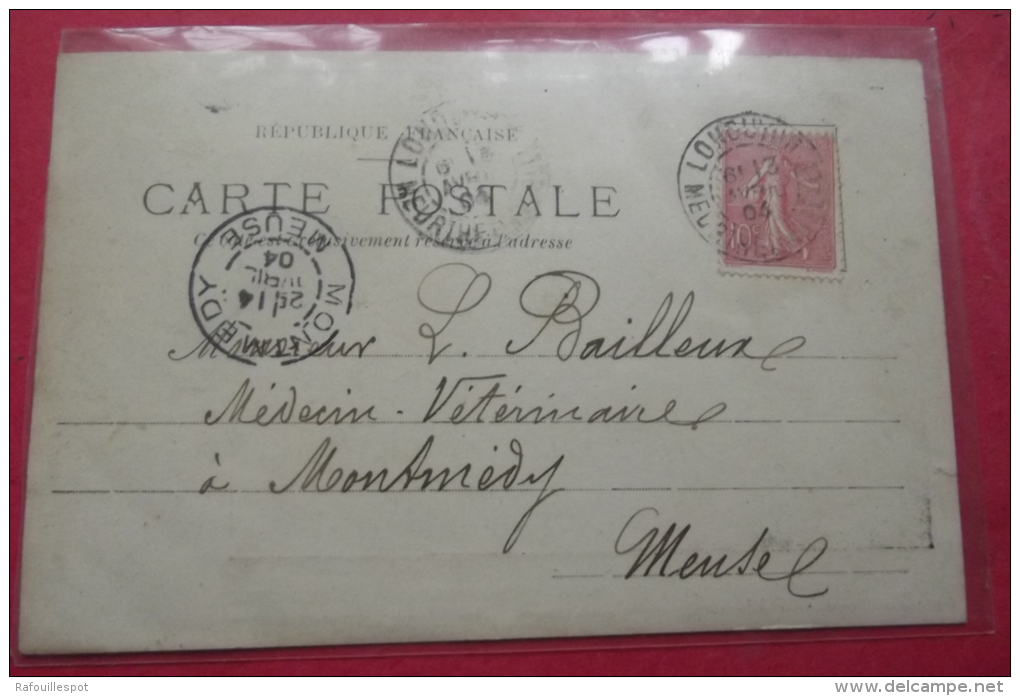 RÉPUBLIQUE FRANÇAISE
CARTE POSTALE
Ce côté est exclusivement réservé à l'adresse
13
AVRIL
04
10c
MEUSE
04
AVRIL
14
MONTMÉDY
Monsieur L. Bailleux
Médecin-Vétérinaire
à Montmédy
Meuse
Rafouillespot
www.delcampe.net